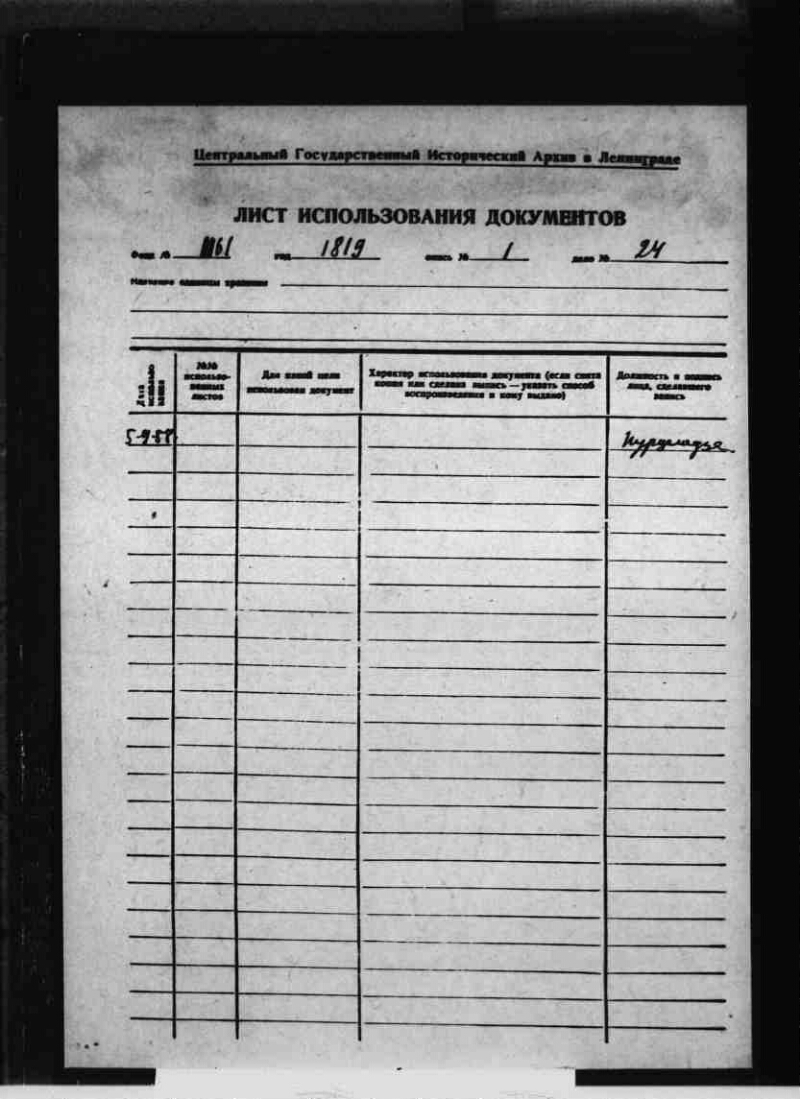 Центральный Государственный Исторический Архив в Ленинграде
ЛИСТ ИСПОЛЬЗОВАНИЯ ДОКУМЕНТОВ
Фонд № 1161 год 1819 опись № 1 дело № 24
Название единицы хранения
Дата использования
№№ использо-
ванных
листов
Для какой цели
использован документ
Характер использования документа (если снята
копия или сделана выпись — указать способ
воспроизведения и кому выдано)
Должность и подпись
лица, сделавшего
запись